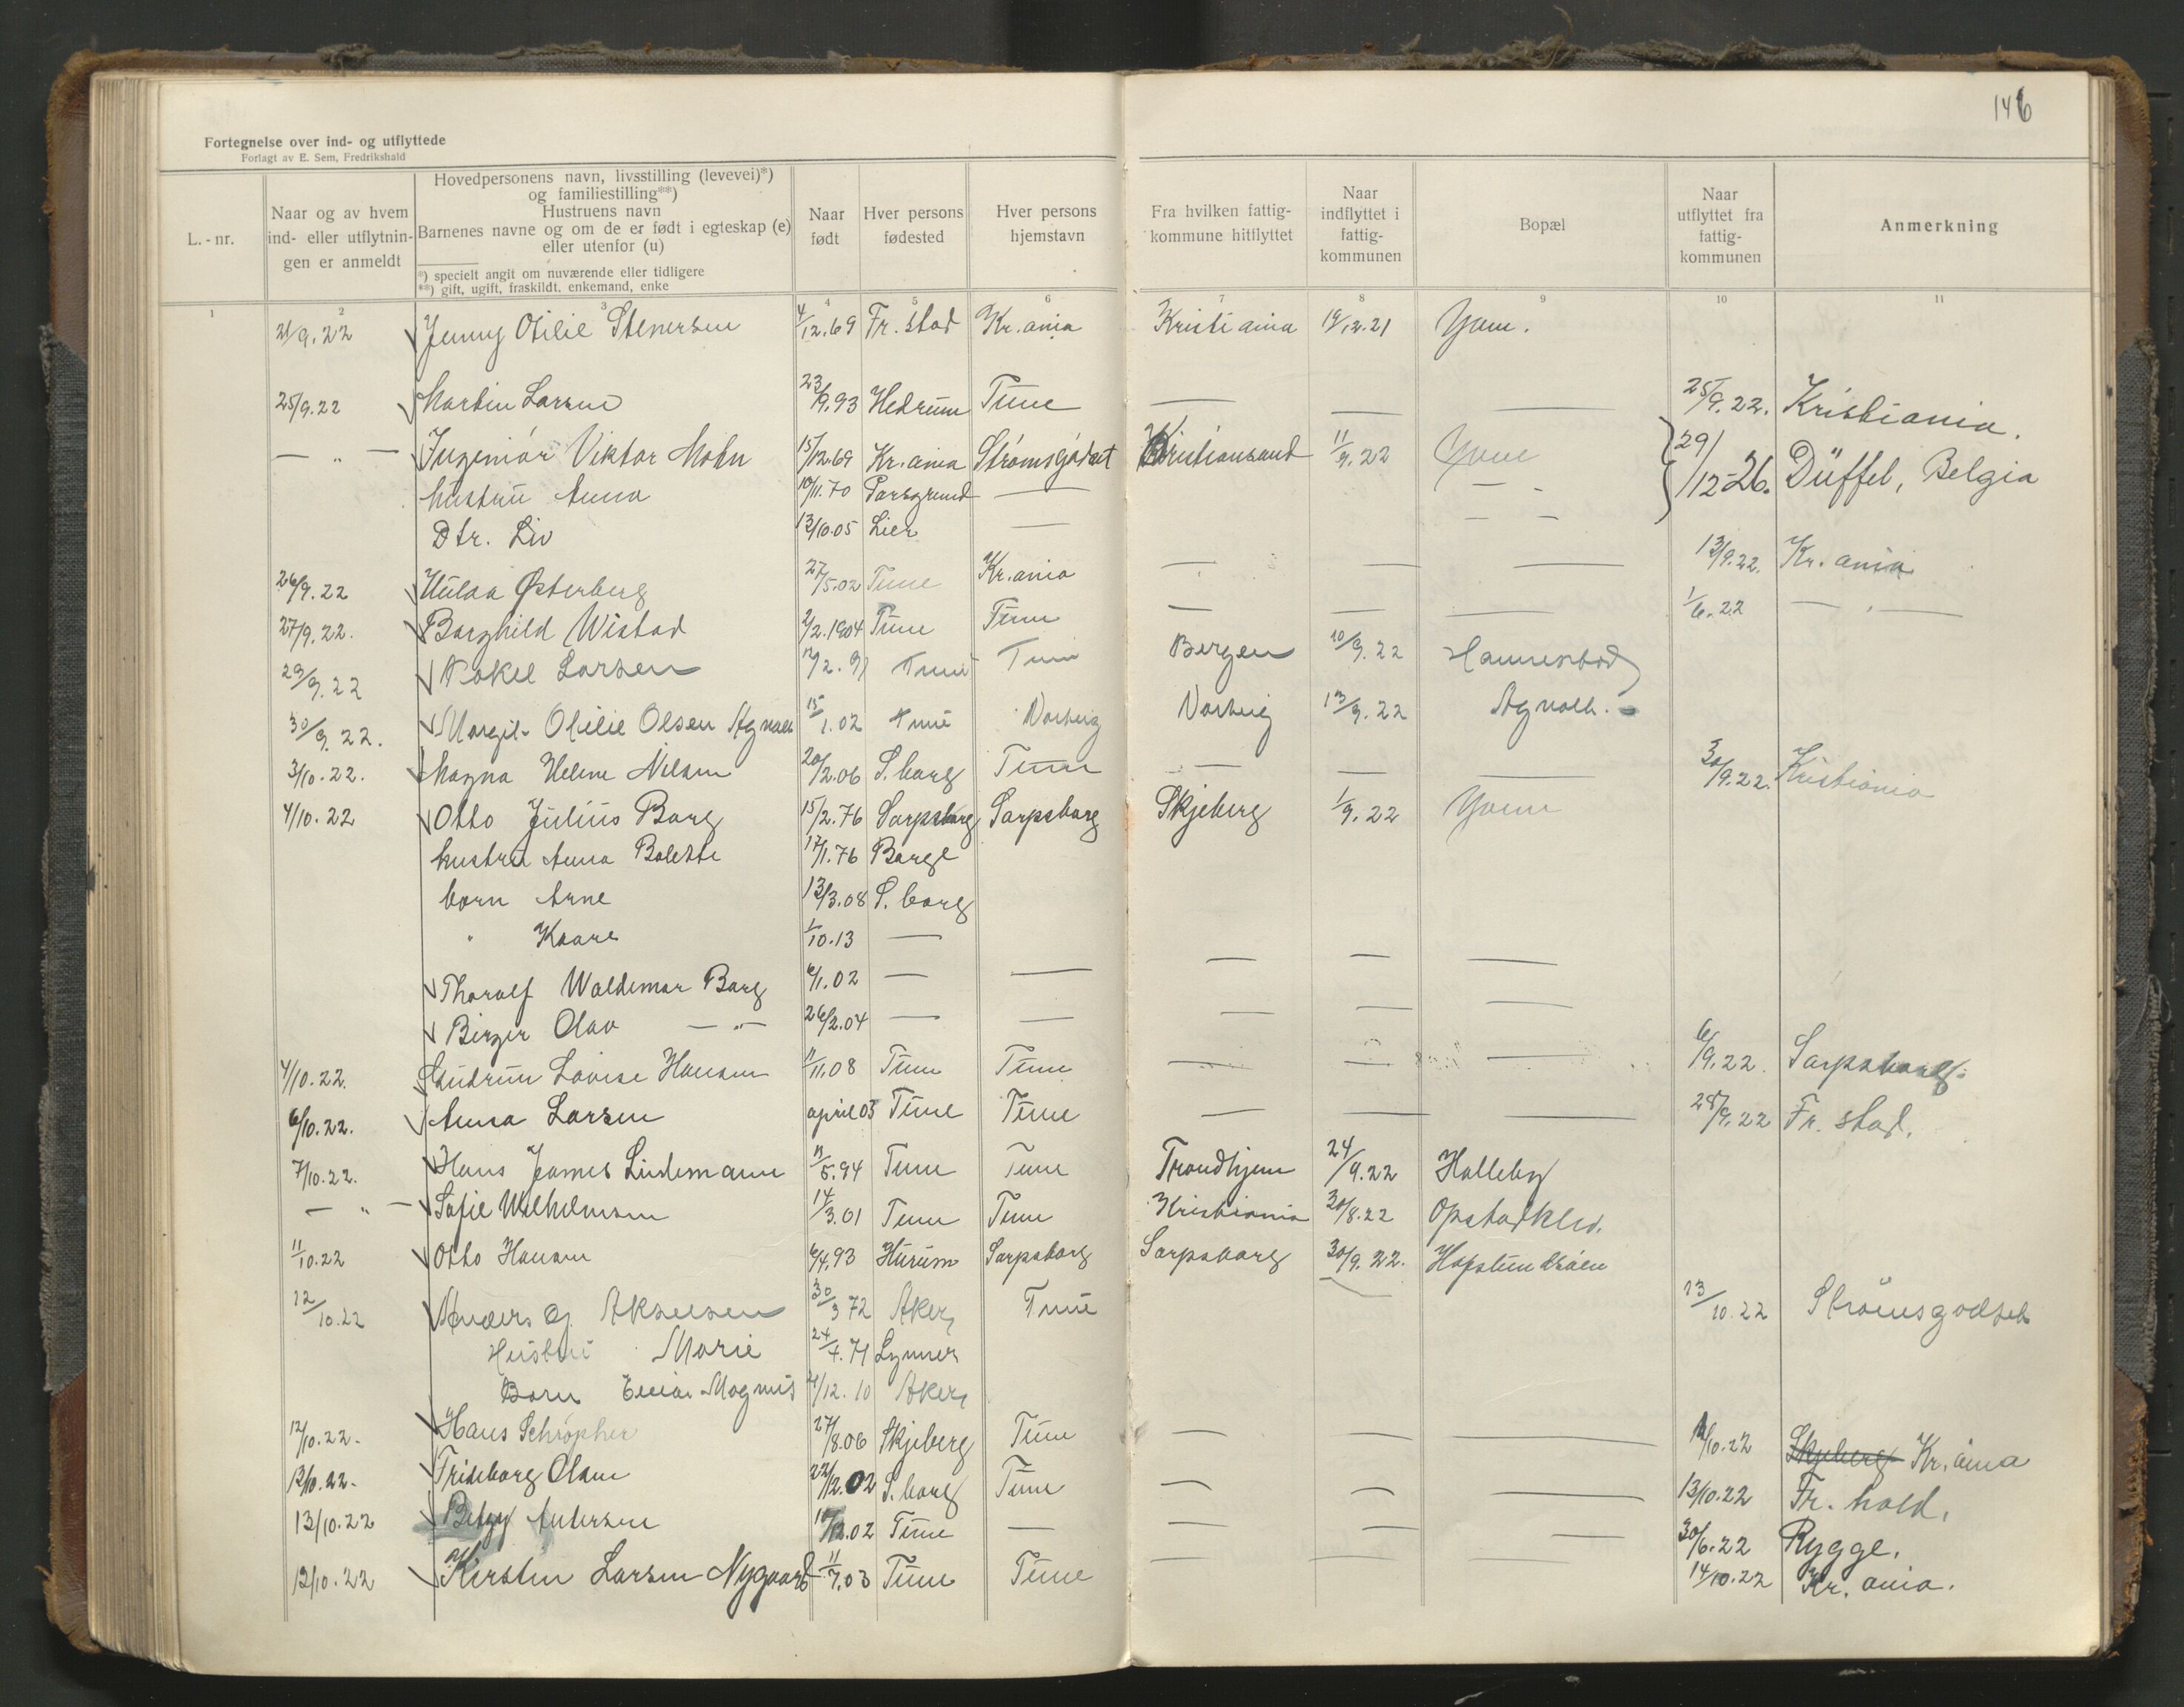 146
Fortegnelse over ind- og utflyttede
Forlagt av E. Sem, Fredrikshald
L.-nr.
Naar og av hvem ind- eller utflytnin- gen er anmeldt
Hovedpersonens navn, livsstilling (levevei)*)
og familiestilling**)
Hustruens navn
Barnenes navne og om de er født i egteskap (e)
eller utenfor (u)
*) specielt angit om nuværende eller tidligere
**) gift, ugift, fraskildt, enkemand, enke
Naar født
Hver persons fødested
Hver persons hjemstavn
Fra hvilken fattig- kommune hitflyttet
Naar indflyttet i fattig- kommunen
Bopæl
Naar utflyttet fra fattig- kommunen
Anmerkning
1 2 3 4 5 6 7 8 9 10 11
21/9.22 Jenny Otilie Stenersen 4/12.69 Fr. stad Kr.ania Kristiania 19/12.21 Yven.
25/9.22 Martin Larsen 23/9.93 Hedrum Tune — — — 25/9.22. Kristiania.
— " — Ingeniør Viktor Mohn 15/12.69 Kr.ania Strømsgodset Kristiansand 11/9.22 Yven 29/12-26. Düffel, Belgia
hustru Anna 10/11.70 Porsgrund — — -
Dtr. Liv 13/10.05 Lier — — -
26/9.22 Hulda Østerberg 27/5.02 Tune Kr.ania — — — 13/9.22. Kr.ania
27/9.22. Borghild Wistad 2/2.1904 Tune Tune — — — 1/6.22 — " —
29/9.22 Larsen 12/2.91 Tune Tune Bergen 10/9.22 Hannestad
30/9.22. Margit Otilie Olsen Agnalt 15/1.02 Tune Varteig Varteig 13/9.22 Agnalt.
3/10.22. Magna Helene Nilsen 20/2.06 S.borg Tune — — — 30/9.22. Kristiania
4/10.22 Otto Julius Borg 15/2.76 Sarpsborg Sarpsborg Skjeberg 1/9.22 Yven
hustru Anna Bolette 17/1.76 Borge
børn Arne 13/3.08 S.borg
" Kaare 1/10.13 —
Thoralf Waldemar Borg 6/1.02 — — — — —
Birger Olav — " — 26/2.04 — — — — —
4/10.22. Gudrun Lovise Hansen 11/11.08 Tune Tune — — — 6/9.22. Sarpsborg.
6/10.22. Anna Larsen april 03 Tune Tune — — — 28/9.22 Fr. stad.
7/10.22. Hans James Lindemann 11/5.94 Tune Tune Trondhjem 24/9.22 Halleby
— " — Sofie Wilhelmsen 14/3.01 Tune Tune Kristiania 30/8.22 Opstadklev.
11/10.22 Otto Hansen 6/4.93 Hurum Sarpsborg Sarpsborg 30/9.22. Hafslundsøen
12/10.22 Anders Akselsen 30/3 72 Aker Tune 13/10.22 Strømsgodset
Hustru Marie 24/4.71 Lunner
Børn Einar Magnus 21/12.10 Aker
12/10.22. Hans Schröpher 27/8.06 Skjeberg Tune — — — 12/10.22 Skjeberg Kr.ania
13/10.22. Frideborg Olsen 22/12.02 S.borg Tune — — — 13/10.22 Fr. hald.
13/10.22 Betzy Andersen 10/12.02 Tune — — — — 30/6.22 Rygge.
13/10.22 Kirsten Larsen Nygaard 11/7.03 Tune Tune — — — 14/10.22 Kr.ania.